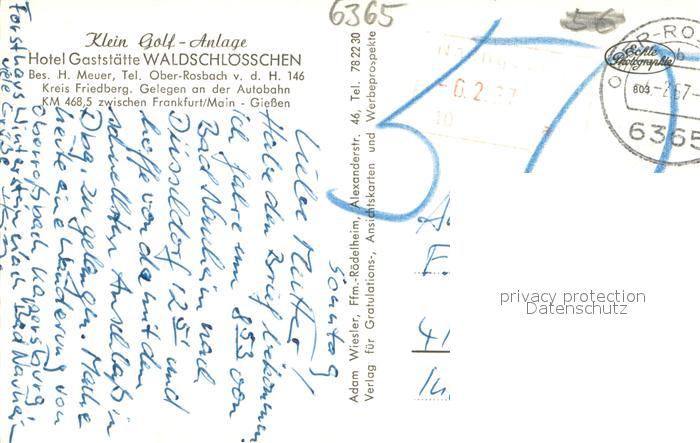 6365
56
57
Klein Golf-Anlage
Hotel Gaststätte WALDSCHLÖSSCHEN
Bes. H. Meuer, Tel. Ober-Rosbach v. d. H. 146
Kreis Friedberg. Gelegen an der Autobahn
KM 468,5 zwischen Frankfurt/Main - Gießen
Echte
Photographie
6365
Adam Wiesler, Ffm.-Rödelheim, Alexanderstr. 46, Tel. 78 22 30
Verlag für Gratulations-, Ansichtskarten und Werbeprospekte
Sonntag
Liebe Mutter!
Habe den Brief bekommen
ich fahre um 8 53 von
Bad Nauheim nach
Düsseldorf 12 51 und
hoffe von da mit dem
schnellsten Anschluß in
zu gelangen. Mache
heute eine Wanderung von
Oberrosbach Kapersburg
Forsthaus Winterstein nach Bad Nauheim
Viele Grüße
41
privacy protection
Datenschutz